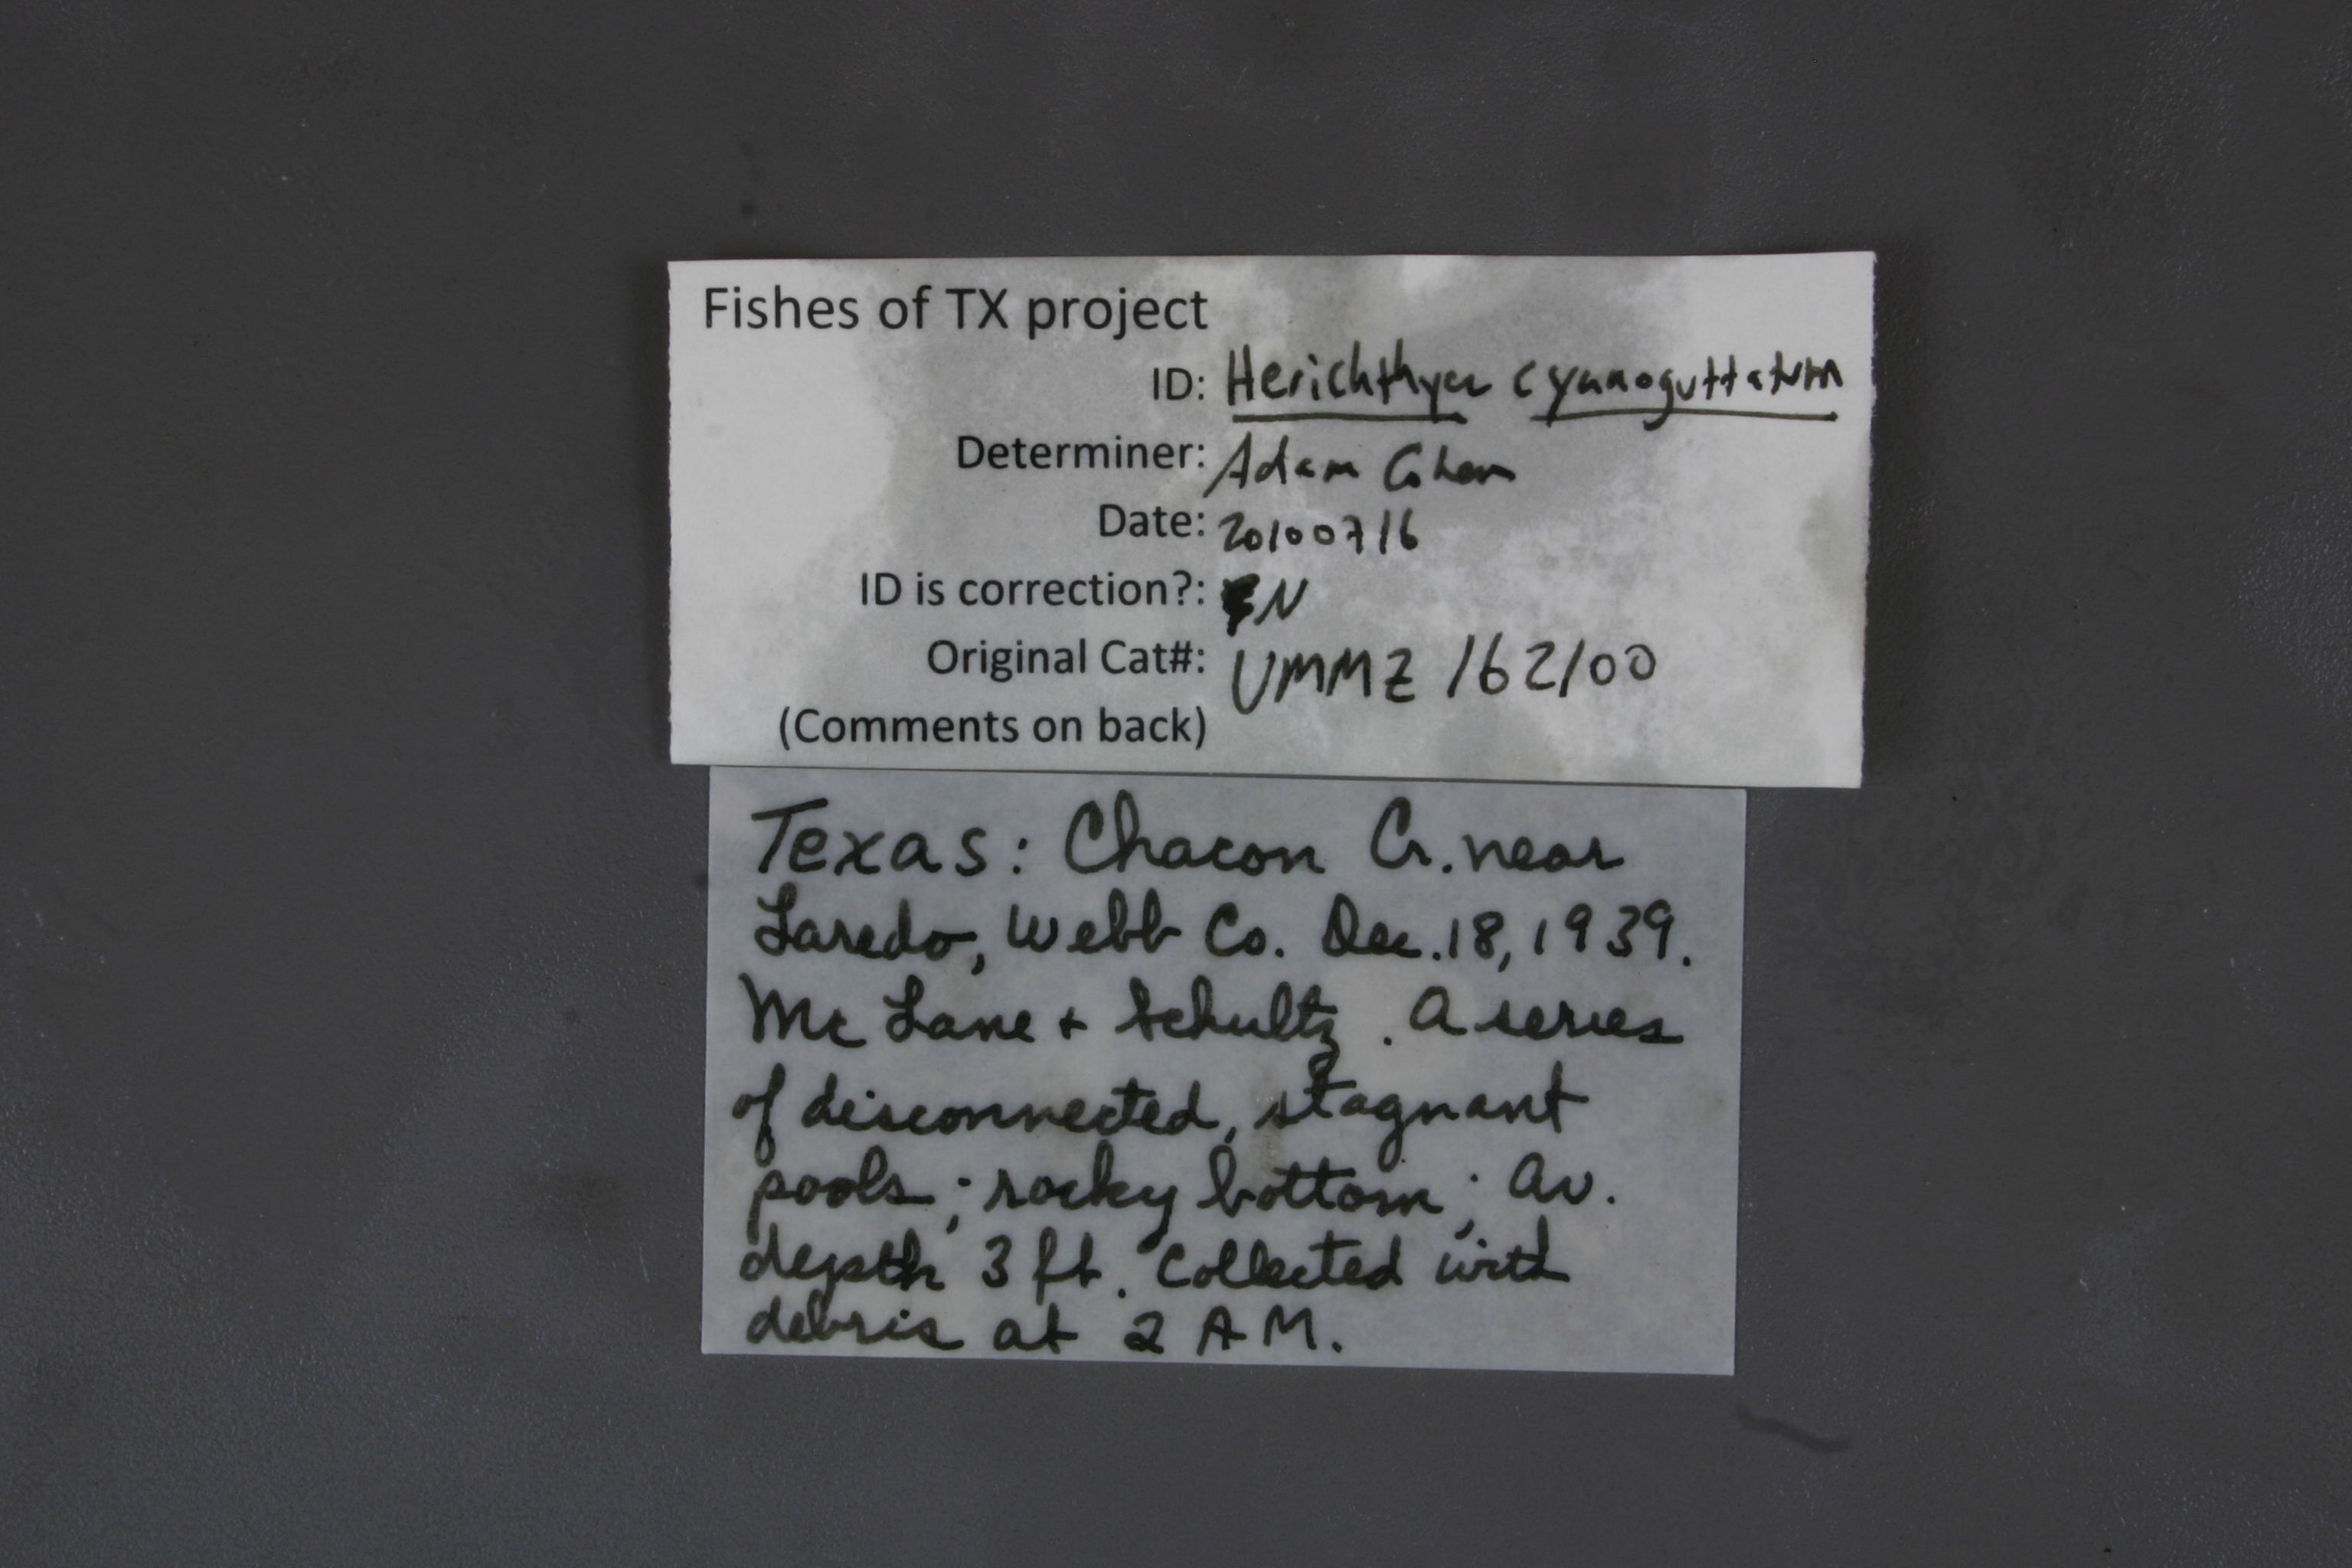 Fishes of TX project
ID: Herichthys cyanoguttatum
Determiner: Adam Cohen
Date: 20100716
ID is correction?: N
Original Cat#: UMMZ 162100
(Comments on back)
Texas: Chacon Cr. near
Laredo, Webb Co. Dec. 18, 1939.
Mc Lane + Schultz. A series
of disconnected, stagnant
pools; rocky bottom; av.
depth 3 ft. Collected with
debris at 2 AM.